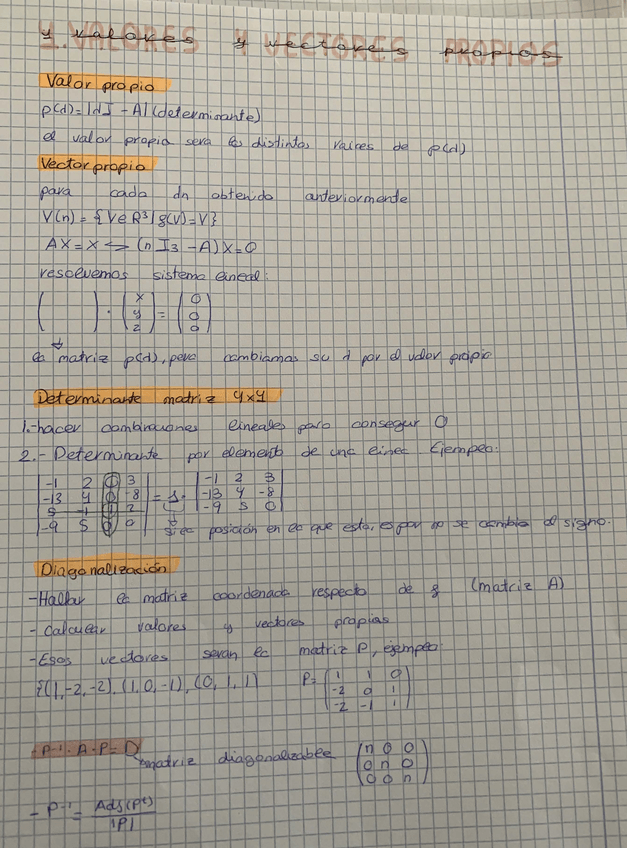 4. VALORES Y VECTORES PROPIOS
Valor propio
p(d)= |dI - A| (determinante)
el valor propio sera las distintas raices de p(d)
Vector propio
para cada dn obtenido anteriormente
V(n) = {V∈R³ / f(v)=V}
AX=X <-> (n I3 - A)X=0
resolvemos sistema lineal:
( ) · (x y z) = (0 0 0)
la matriz p(d), pero cambiamos su d por el valor propio
Determinante matriz 4x4
1.-hacer combinaciones lineales para conseguir 0
2.- Determinante por elemento de una linea Ejemplo:
|-1 2 0 3| = 1· |-1 2 3|
|-13 4 0 -8| |-13 4 -8|
|5 -1 1 2| |-9 5 0|
|-9 5 0 0| si la posición en la que esta, es par no se cambia el signo.
Diagonalización
-Hallar la matriz coordenada respecto de f (matriz A)
- Calcular valores y vectores propias
-Esos vectores seran la matriz P, ejemplo:
{(1,-2,-2), (1,0,-1), (0,1,1) P= (1 1 0
-2 0 1
-2 -1 1)
P⁻¹·A·P=D matriz diagonalizable (n 0 0
0 n 0
0 0 n)
- P⁻¹ = Adj(Pᵗ)
|P|